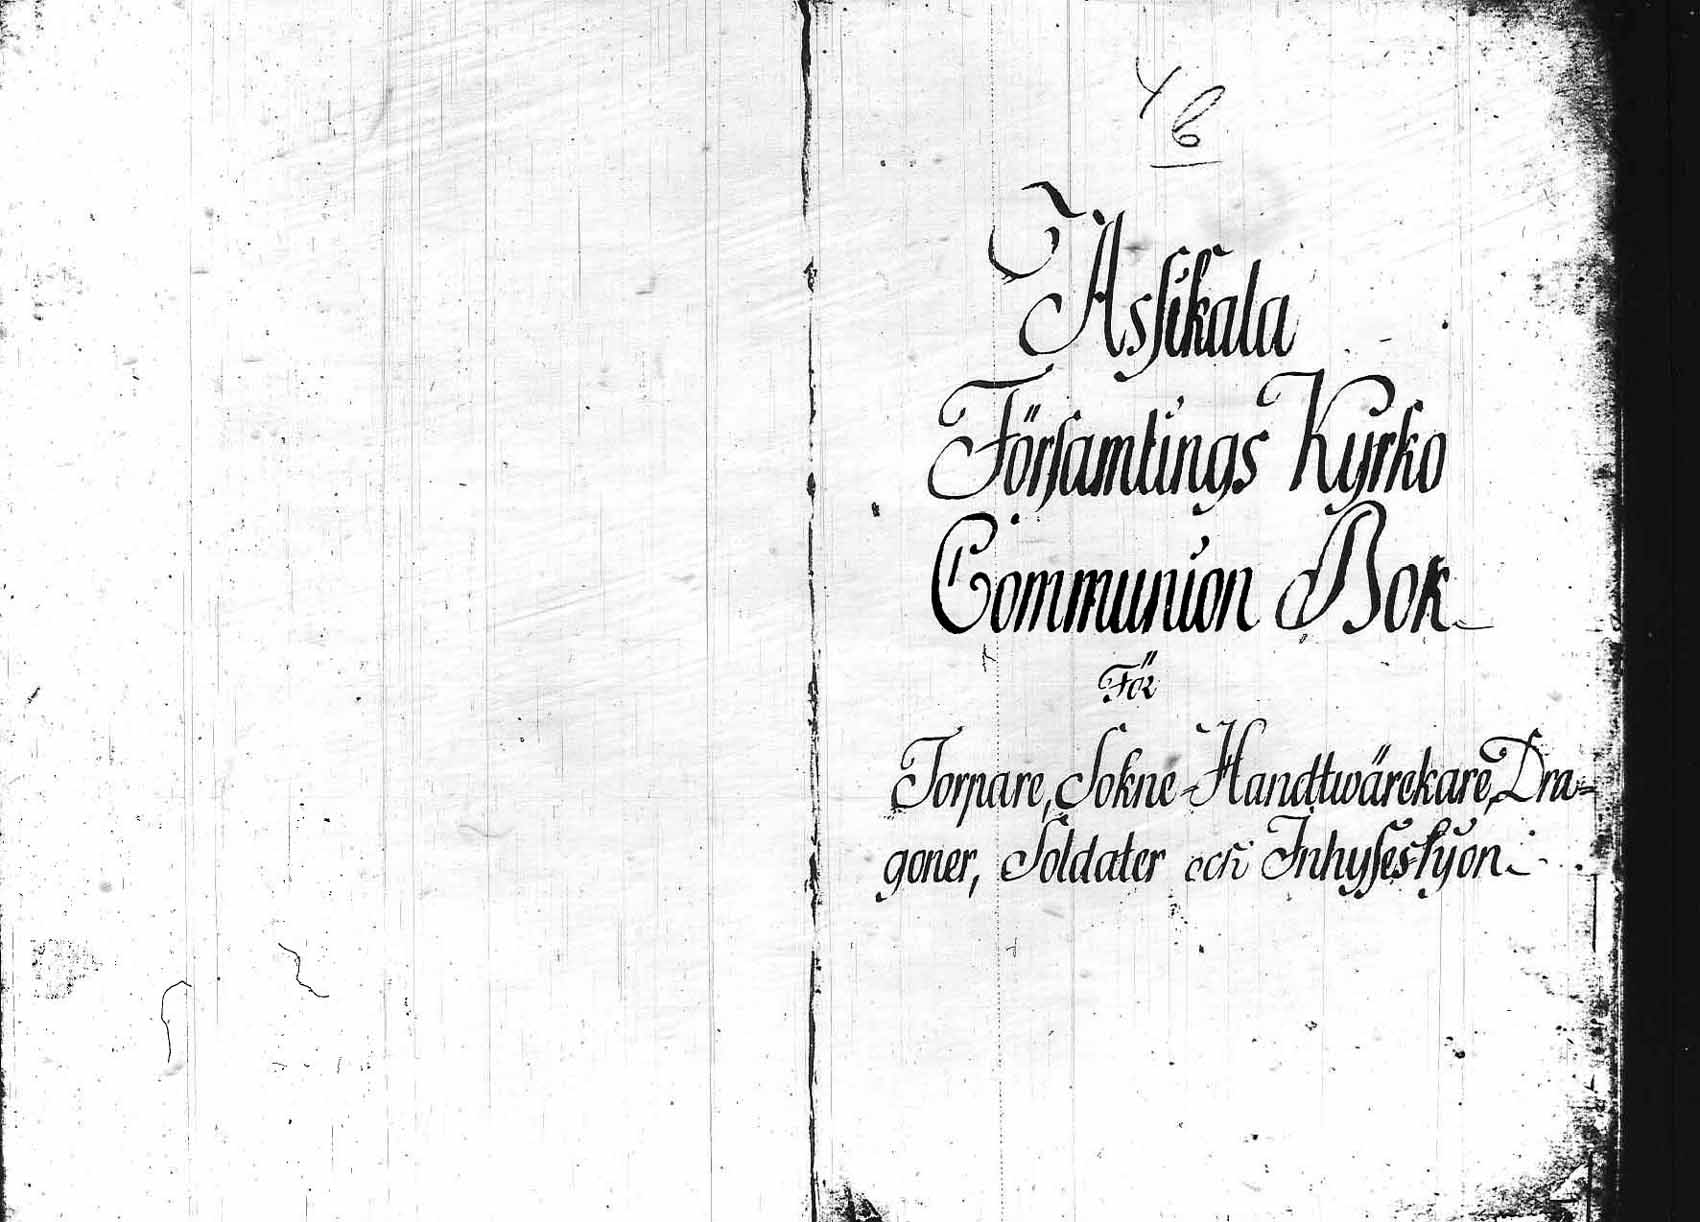 4 b
Assikala
Församlings Kyrko
Communion Bok
För
Torpare, Sokne-Handtwärckare, Dra=
goner, Soldater och Inhyseshjon.